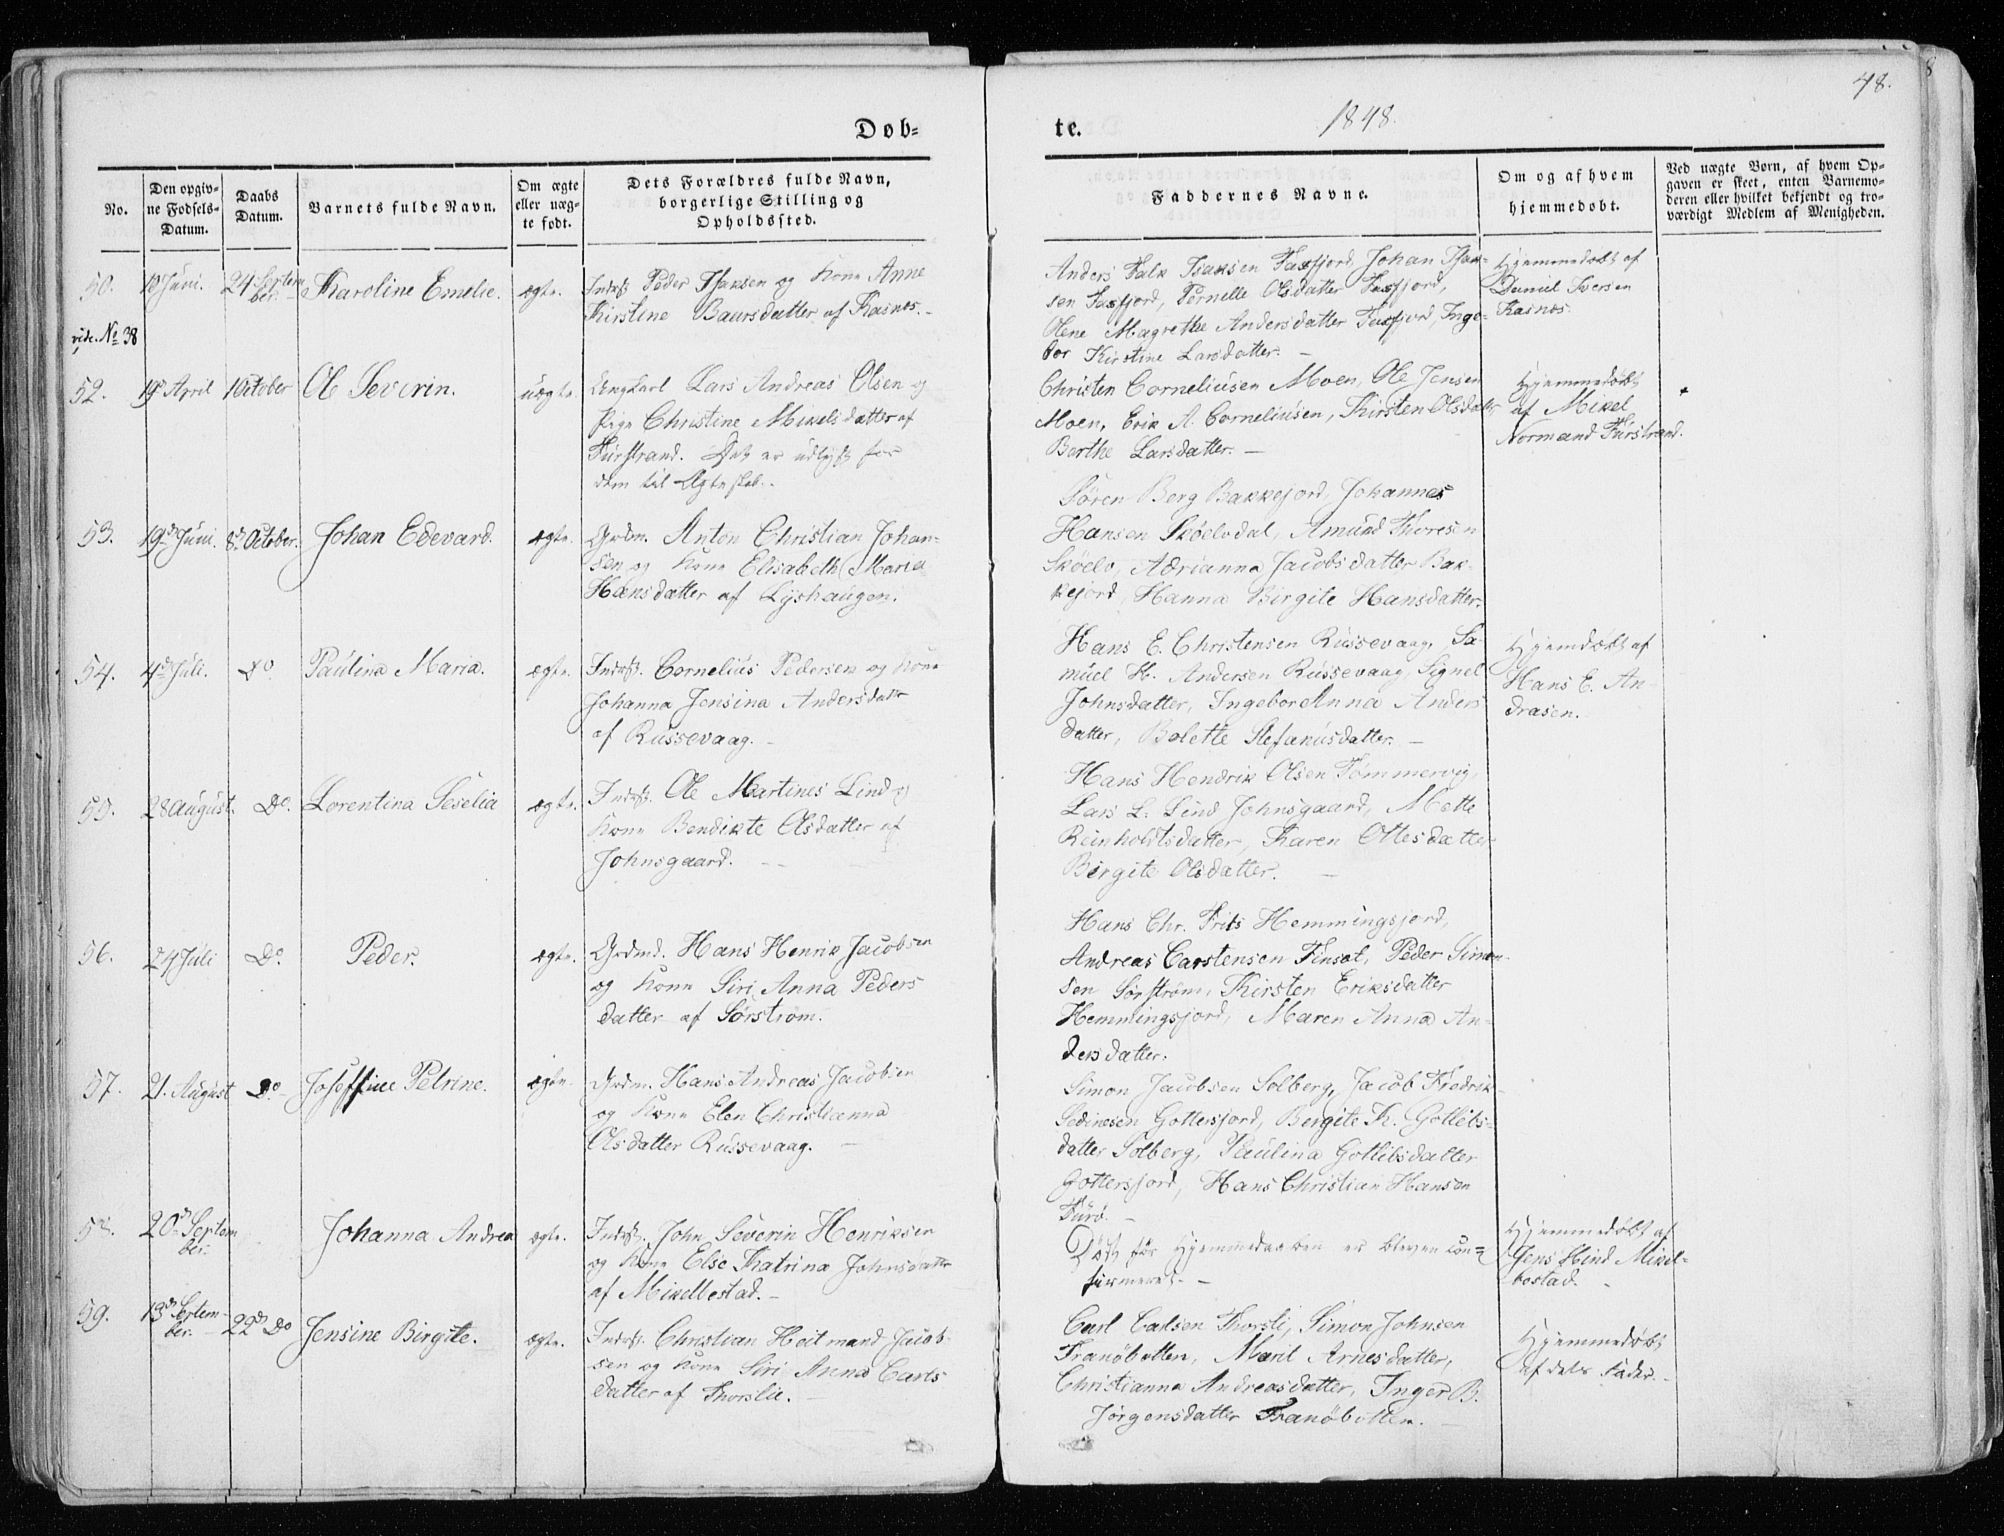 48.
Døb=
te.
1848.
No.
Den opgiv-
ne Fødsels-
Datum.
Daabs
Datum.
Barnets fulde Navn.
Om ægte
eller uæg-
te født.
Dets Forældres fulde Navn,
borgerlige Stilling og
Opholdssted.
Faddernes Navne.
Om og af hvem
hjemmedøbt.
Ved uægte Børn, af hvem Op-
gaven er skeet, enten Barnemo-
deren eller hvilket bekjendt og tro-
værdigt Medlem af Menigheden.
50.
10 Juni.
24 Septem
ber.
Karoline Emelie.
ægte.
Inderst Peder Isaksen og Kone Anne
Kirstine Baarsdatter af Kasnes.
Anders Falk Isaksen Faxfjord, Johan Isak-
sen Faxfjord, Pernelle Olsdatter Faxfjord,
Olene Magrethe Andersdatter Faxfjord, Inge-
bor Kirstine Larsdatter. —
Hjemmedøbt af
Daniel Iversen
Kasnes.
vide. No 38
52.
19de April
1 October
Ole Severin.
uægte.
Ungkarl Lars Andreas Olsen og
Pige Christine Mikelsdatter af
Furstrand. Det er udlyst for
dem til Ægteskab.
Christen Corneliusen Moen, Ole Jensen
Moen, Erik A. Corneliusen, Kirsten Olsdatter
Berthe Larsdatter. —
Hjemmedøbt
af Mikel
Normand Furstrand.
53.
19de Juni.
8de October.
Johan Edevard.
ægte.
Grdm. Anton Christian Johan-
sen og Kone Elisabeth Maria
Hansdatter af Lyshaugen.
Sören Berg Bakkejord, Johannes
Hansen Sköelvdal, Amund Thoresen
Sköelv, Adrianna Jacobsdatter Bak-
kejord, Hanna Birgite Hansdatter.
54.
4de Juli.
Do
Paulina Maria.
ægte.
Inderst. Cornelius Pedersen og Kone
Johanna Jensina Andersdatter
af Russevaag. -
Hans E. Christensen Russevaag, Sa-
muel H. Andersen Russevaag, Signel
Johnsdatter, Ingebor Anna Anders
datter, Bolette Stefanusdatter. —
Hjemdøbt af
Hans E. An-
drasen.
55.
28 August.
Do.
Lorentina Seselia
ægte.
Inderst. Ole Martines Lind og
Kone Bendikte Olsdatter af
Johnsgaard. —
Hans Hendrik Olsen Tømmervig,
Lars L. Lind Johnsgaard, Mette
Reinholdtsdatter, Karen Ottesdatter
Birgite Olsdatter. —
56.
24 Juli
Do.
Peder.
ægte.
Grdmd. Hans Henrik Jacobsen
og Kone Siri Anna Peders
datter af Sörstrøm.
Hans Chr. Frits Hemmingsjord,
Andreas Carstensen Finsæt, Peder Simon-
sen Sørstrøm, Kirsten Eriksdatter
Hemmingsjord, Maren Anna An-
dersdatter.
57.
21. August
Do
Joseffine Petrine.
ægte.
Grdm. Hans Andreas Jacobsen
og Kone Elen Christianna
Olsdatter Russevaag. —
Simon Jacobsen Solberg, Jacob Fredrik-
Gottersjord, Birgite K. Gotlibs-
datter Solberg, Paulina Gotlibsdatter
Gottersjord, Hans Christian Hansen
Furö. —
58.
20de Septem
ber.
Johanna Andrea
ægte.
Inderst. John Severin Henriksen
og Kone Else Katrina Johnsdatter
af Mikelbostad. -
Död før Hjemmedaaben er bleven con-
firmeret. -
Hjemmedøbt af
Jens Hind Mikel-
bostad. -
59.
13de Septem-
ber.
22de Do
Jensine Birgite.
ægte.
Inderst. Christian Heitmand Jacob-
sen og Kone Siri Anna Carls
datter af Thorslie. —
Carl Carlsen Thorsli, Simon Johnsen
Tranöbotten, Marit Arnesdatter,
Christianna Andreasdatter, Inger B.
Jörgensdatter Tranöbotten. —
Hjemmedøbt
af dets Fader. -